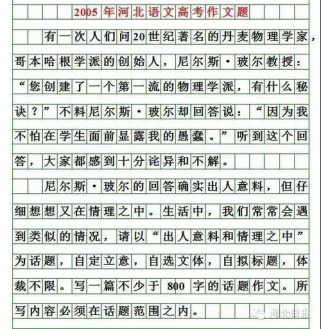 2005年河北语文高考作文题
有一次人们问20世纪著名的丹麦物理学家，
哥本哈根学派的创始人，尼尔斯·玻尔教授：
“您创建了一个第一流的物理学派，有什么秘
诀？”不料尼尔斯·玻尔却回答说：“因为我
不怕在学生面前显露我的愚蠢。”听到这个回
答，大家都感到十分诧异和不解。
尼尔斯·玻尔的回答确实出人意料，但仔
细想想又在情理之中。生活中，我们常常会遇
到类似的情况，请以“出人意料和情理之中”
为话题，自定立意，自选文体，自拟标题，体
裁不限。写一篇不少于 800 字的话题作文。所
写内容必须在话题范围之内。